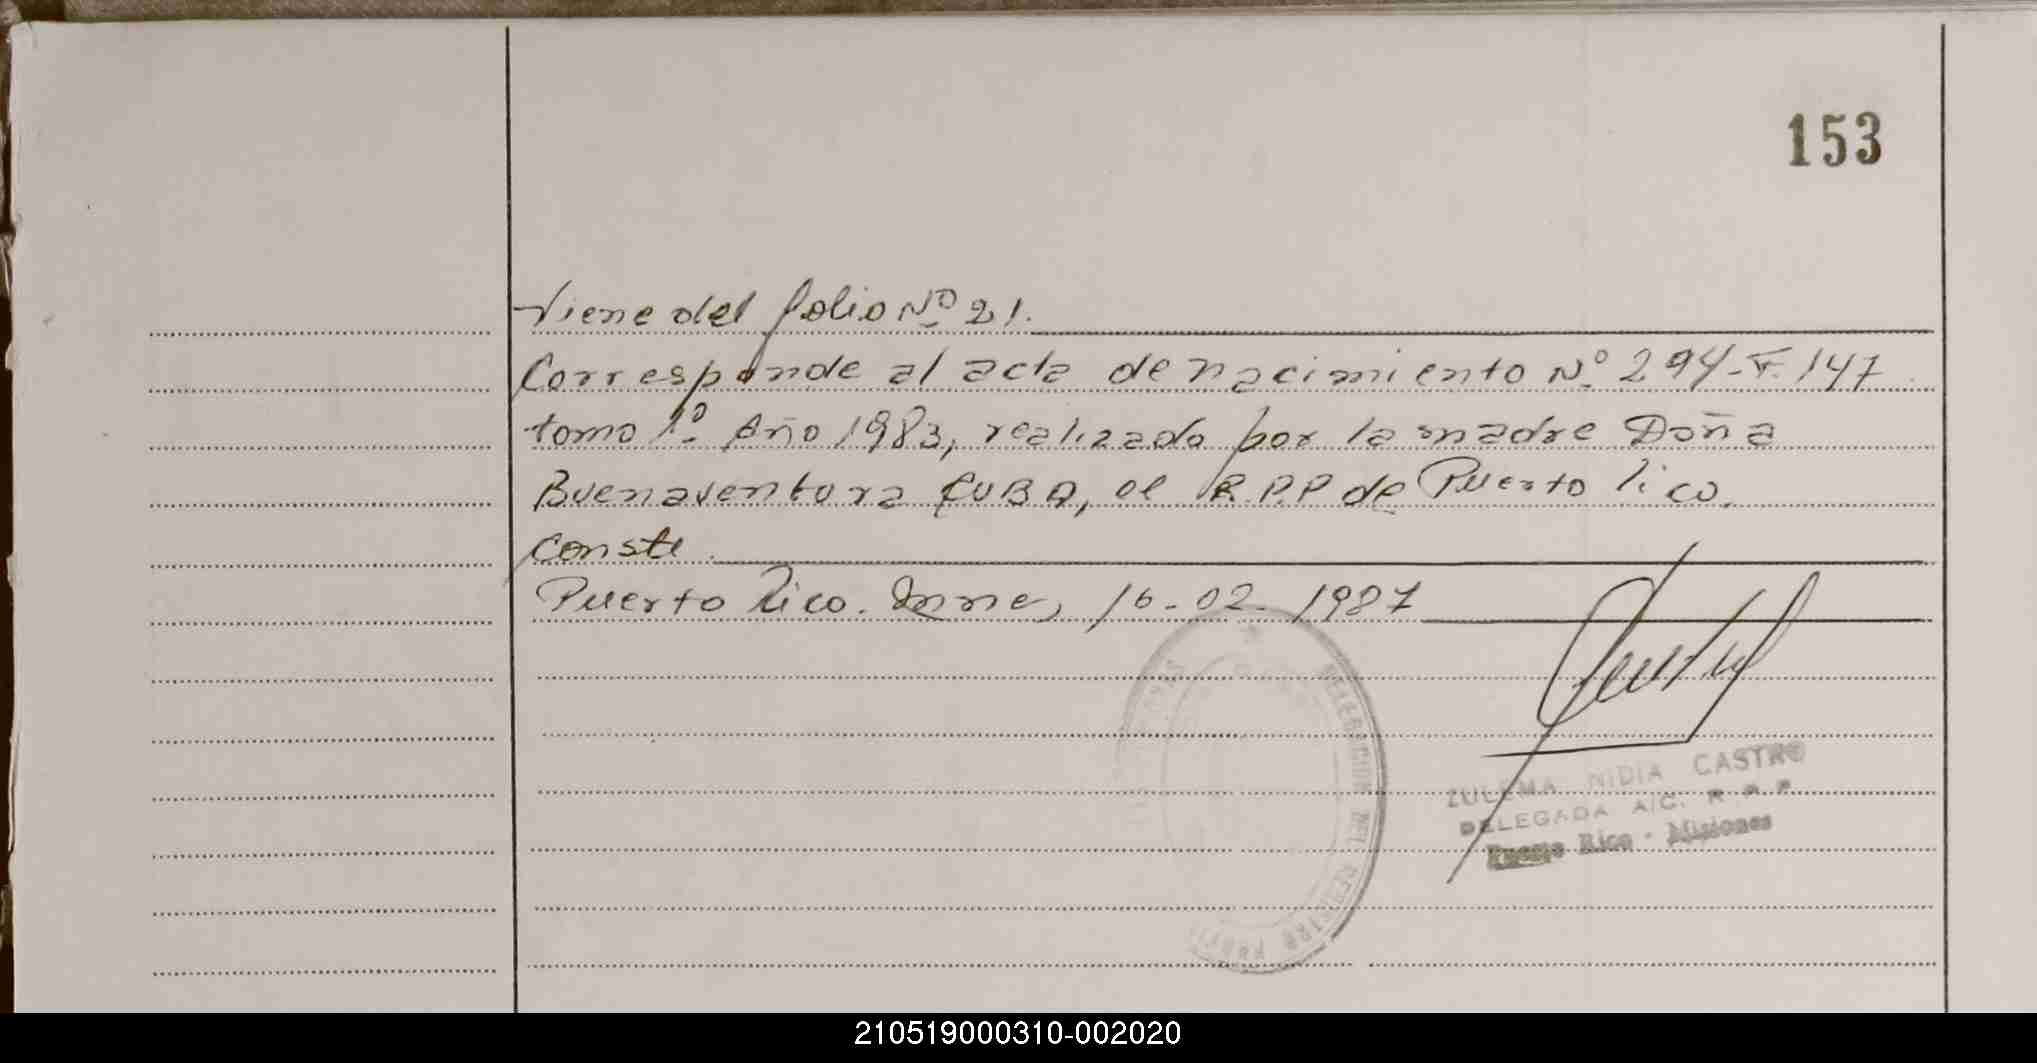 153
Viene del folio Nº 21.
Corresponde al acta de nacimiento Nº 294-F. 147
tomo 1º Año 1983, realizado por la madre Doña
Buenaventura CUBA, el R.P.P de Puerto Rico.
Conste.
Puerto Rico. Mnes, 16-02-1987
DELEGACION DEL REGISTRO
ZULEMA NIDIA CASTRO
DELEGADA A/C. R P P
Puerto Rico - Misiones
210519000310-002020